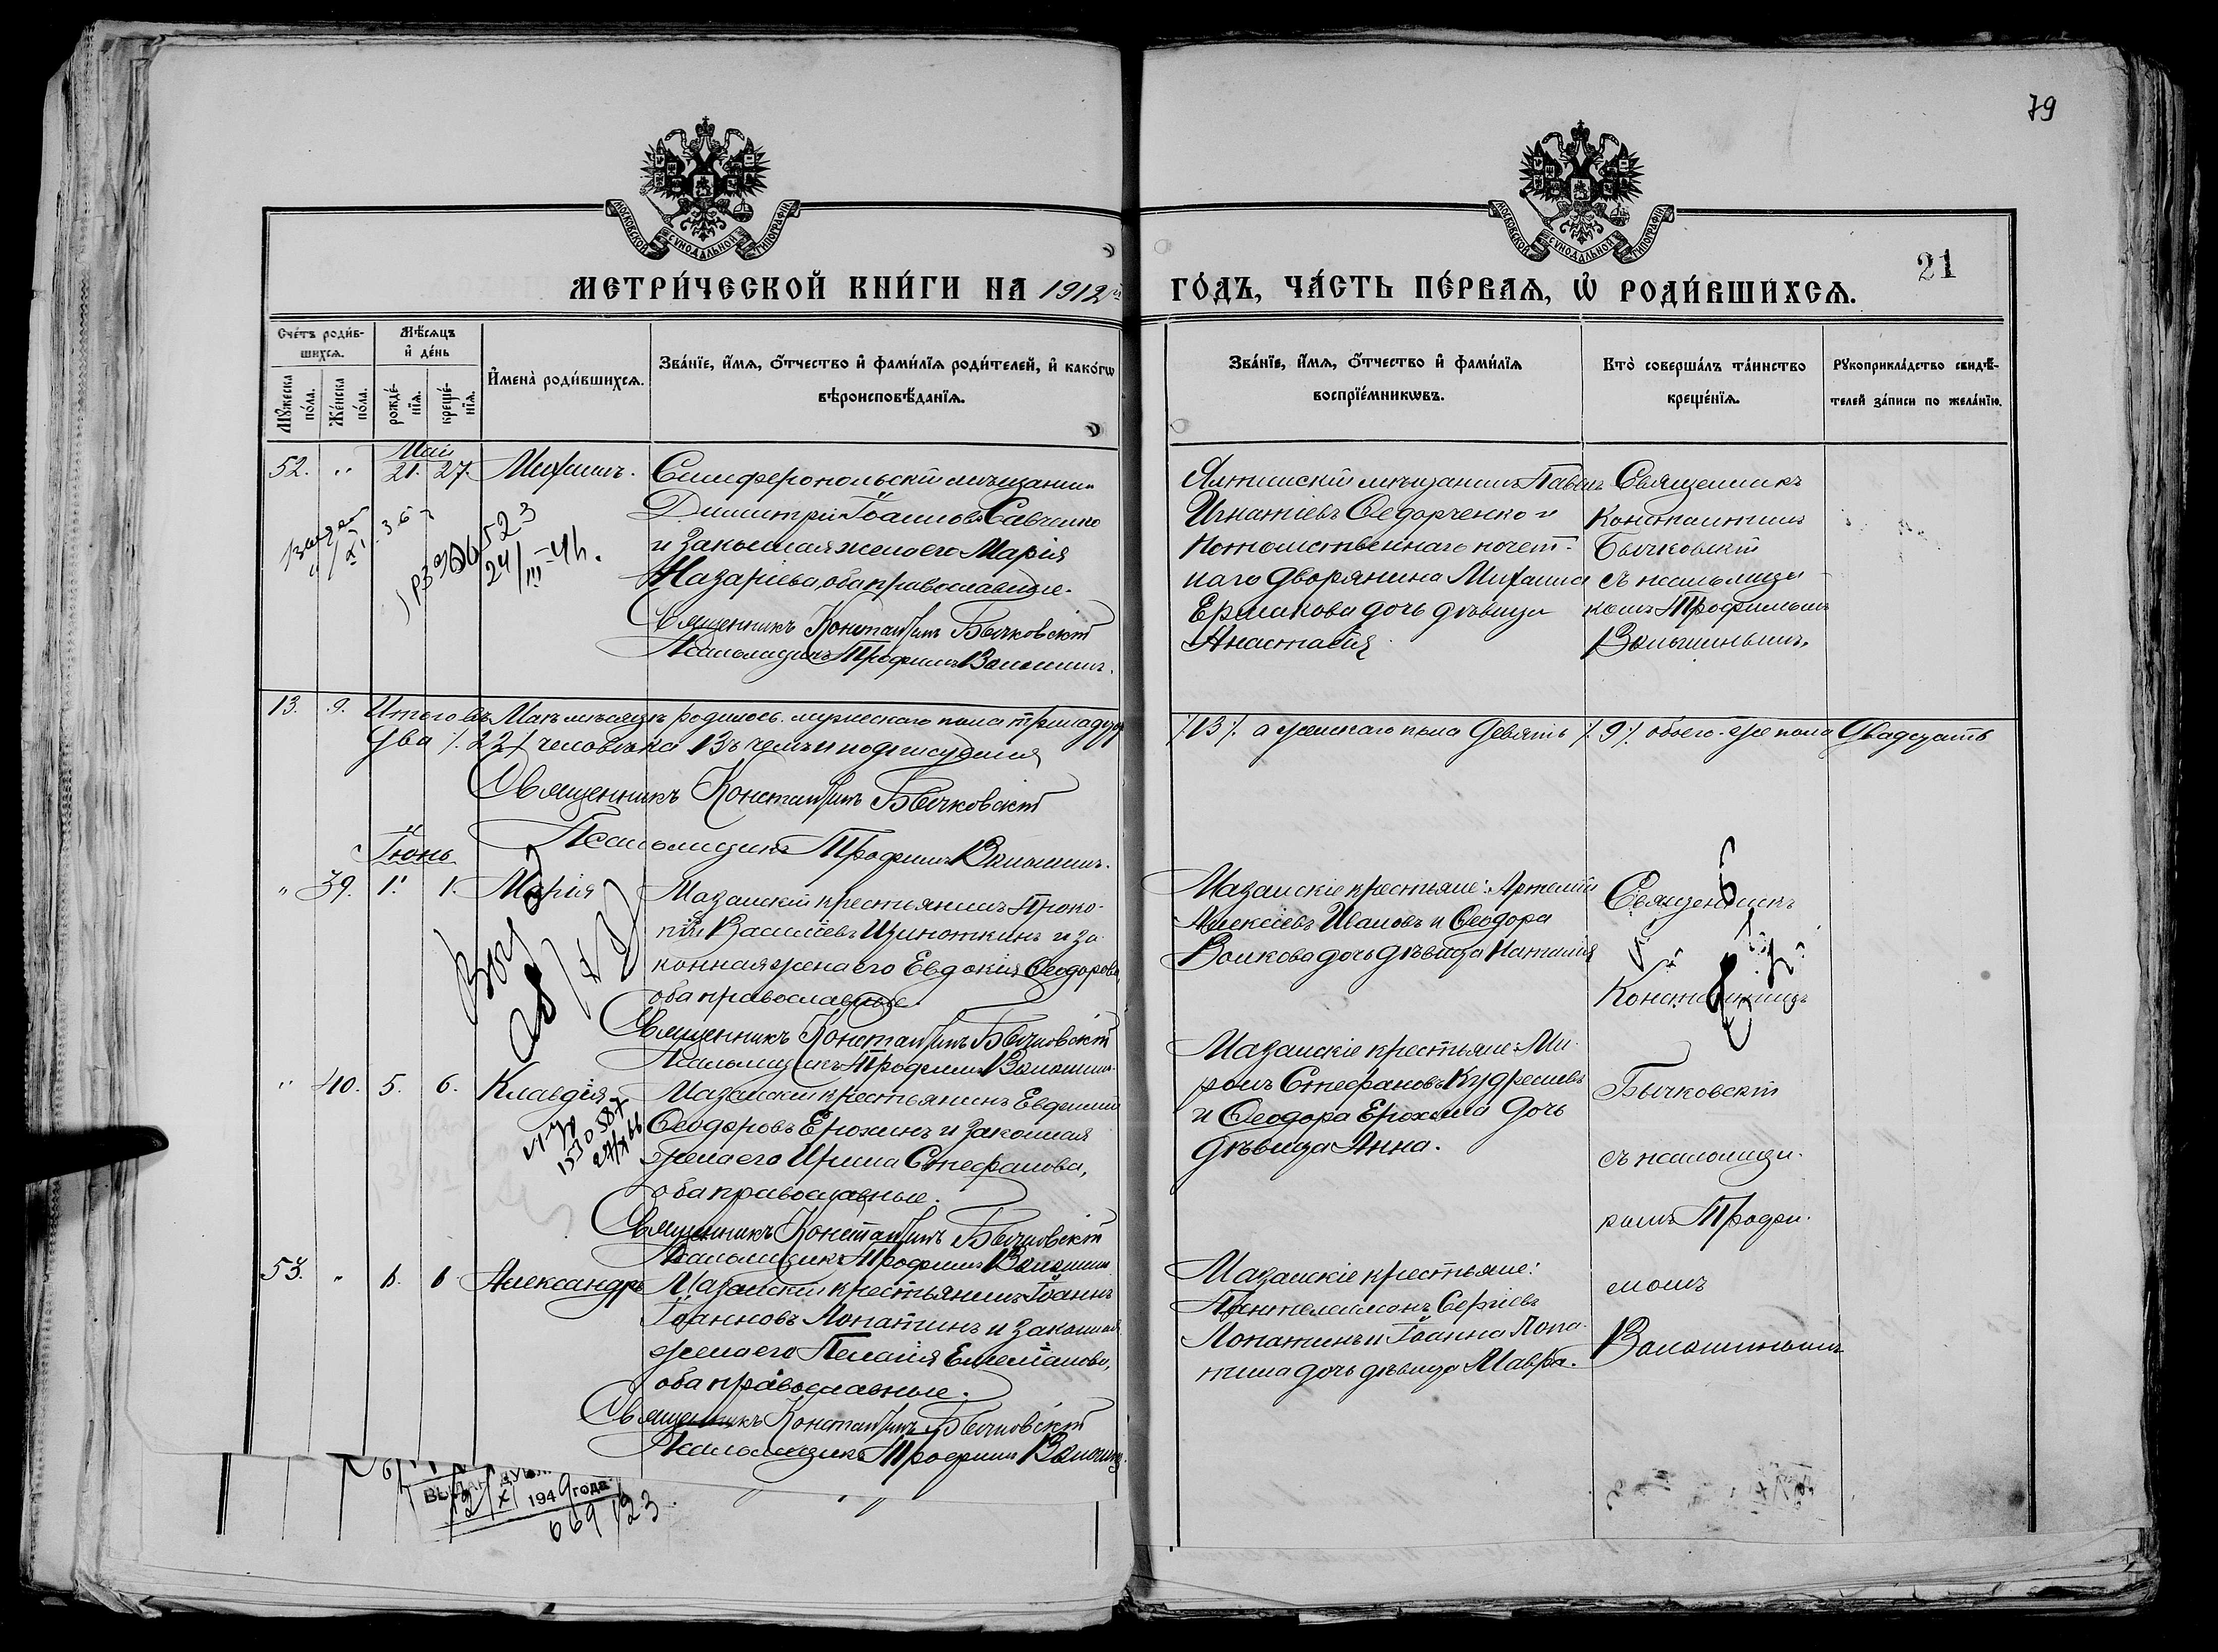 79
МОСКОВСКОЙ СУНОДАЛЬНОЙ ТИПОГРАФІИ
МОСКОВСКОЙ СУНОДАЛЬНОЙ ТИПОГРАФІИ
МЕТРИ́ЧЕСКОЙ КНИ́ГИ НА 1912й
ГО́ДЪ, ЧА́СТЬ ПЕ́РВАѦ, Ѽ РОДИ́ВШИХСѦ.
21
Сче́тъ роди́в-
шихсѧ.
Мꙋжеска
по́ла.
Же́нска
по́ла.
Мѣ́сѧцъ
и҆ де́нь
рожде́-
нїѧ.
креще́-
нїѧ.
И҆мена̀ роди́вшихсѧ.
Зва́нїе, и҆́мѧ, ѻ҆́тчество и҆ фами́лїѧ роди́телей, и҆ како́гѡ
вѣроисповѣ́данїѧ.
Зва́нїе, и҆́мѧ, ѻ҆́тчество и҆ фами́лїѧ
воспрїе́мникѡвъ.
Кто̀ соверша́лъ та́инство
креще́нїѧ.
Рꙋкоприкла́дство свидѣ́-
телей за́писи по жела́нїю.
Май
52. " 21. 27. Михаилъ.
Симферопольскій мѣщанинъ
Димитрій Іоанновъ Савченко
и законная жена его Марія
Назаріева, оба православные.
Священникъ Константинъ Бычковскій
Псаломщикъ Трофимъ Волошинъ.
Ялтинскій мѣщанинъ Павелъ
Игнатіевъ Федорченко и
потомственнаго почет-
наго дворянина Михаила
Ермакова дочь дѣвица
Анастасія.
Священникъ
Константинъ
Бычковскій
съ псаломщи
комъ Трофимомъ
Волошинымъ.
24/III-41.
13. 9. Итого въ Маѣ мѣсяцѣ родилось: мужескаго пола тринадцать
/.13/. а женскаго пола девять /.9/. обоего-же пола двадцать
два /.22/. человѣка Въ чемъ и подписуемся
Священникъ Константинъ Бычковскій
Псаломщикъ Трофимъ Волошинъ.
Іюнь
" 39. 1. 1. Марія
Мазанскій крестьянинъ Проко-
пій Василіевъ Изноткинъ и за-
конная жена его Евдокія Ѳеодорова,
оба православные.
Священникъ Константинъ Бычковскій
Псаломщикъ Трофимъ Волошинъ.
Мазанскіе крестьяне: Артемій
Алексіевъ Ивановъ и Ѳеодора
Волкова дочь дѣвица Наталія
Священникъ
Константинъ
Бычковскій
съ псаломщи-
комъ Трофи-
момъ
Волошинымъ
" 40. 5. 6. Клавдія
Мазанскій крестьянинъ Евфимій
Ѳеодоровъ Ерохинъ и законная
жена его Ирина Стефанова,
оба православные.
Священникъ Константинъ Бычковскій
Псаломщикъ Трофимъ Волошинъ
Мазанскіе крестьяне: Ми-
ронъ Стефановъ Кудряшевъ
и Ѳеодора Ерохина дочь
дѣвица Анна.
53. " 6. 6 Александръ
Мазанскій крестьянинъ Іоаннъ
Іоанновъ Лопатинъ и законная
жена его Пелагія Емеліанова,
оба православные.
Священникъ Константинъ Бычковскій
Псаломщикъ Трофимъ Волошинъ.
Мазанскіе крестьяне:
Пантелеимонъ Сергіевъ
Лопатинъ и Іоанна Лопа-
тина дочь дѣвица Мавра.
12/X 1949 года
669/23